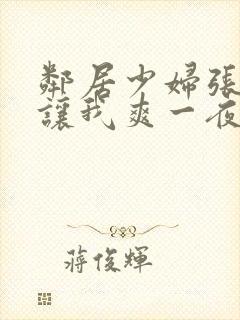 鄰居少婦張
讓我爽一夜
蔣俊輝